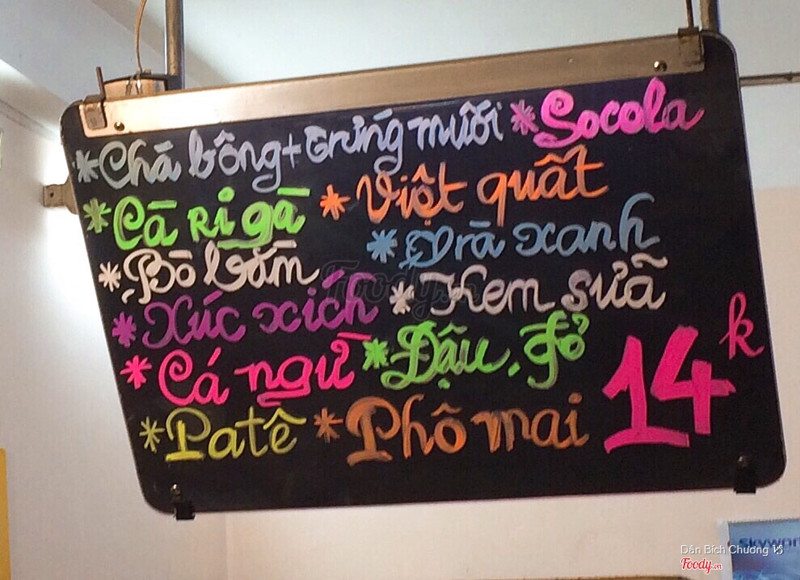 *Chà bông+trứng muối *Socola
*Cà ri gà *Việt quất
*Bò bằm *Trà xanh
*Xúc xích *Kem sữa
*Cá ngừ *Đậu đỏ
*Patê *Phô mai
14k
Foody.vn
Dân Bích Chương
Foody.vn
skywor